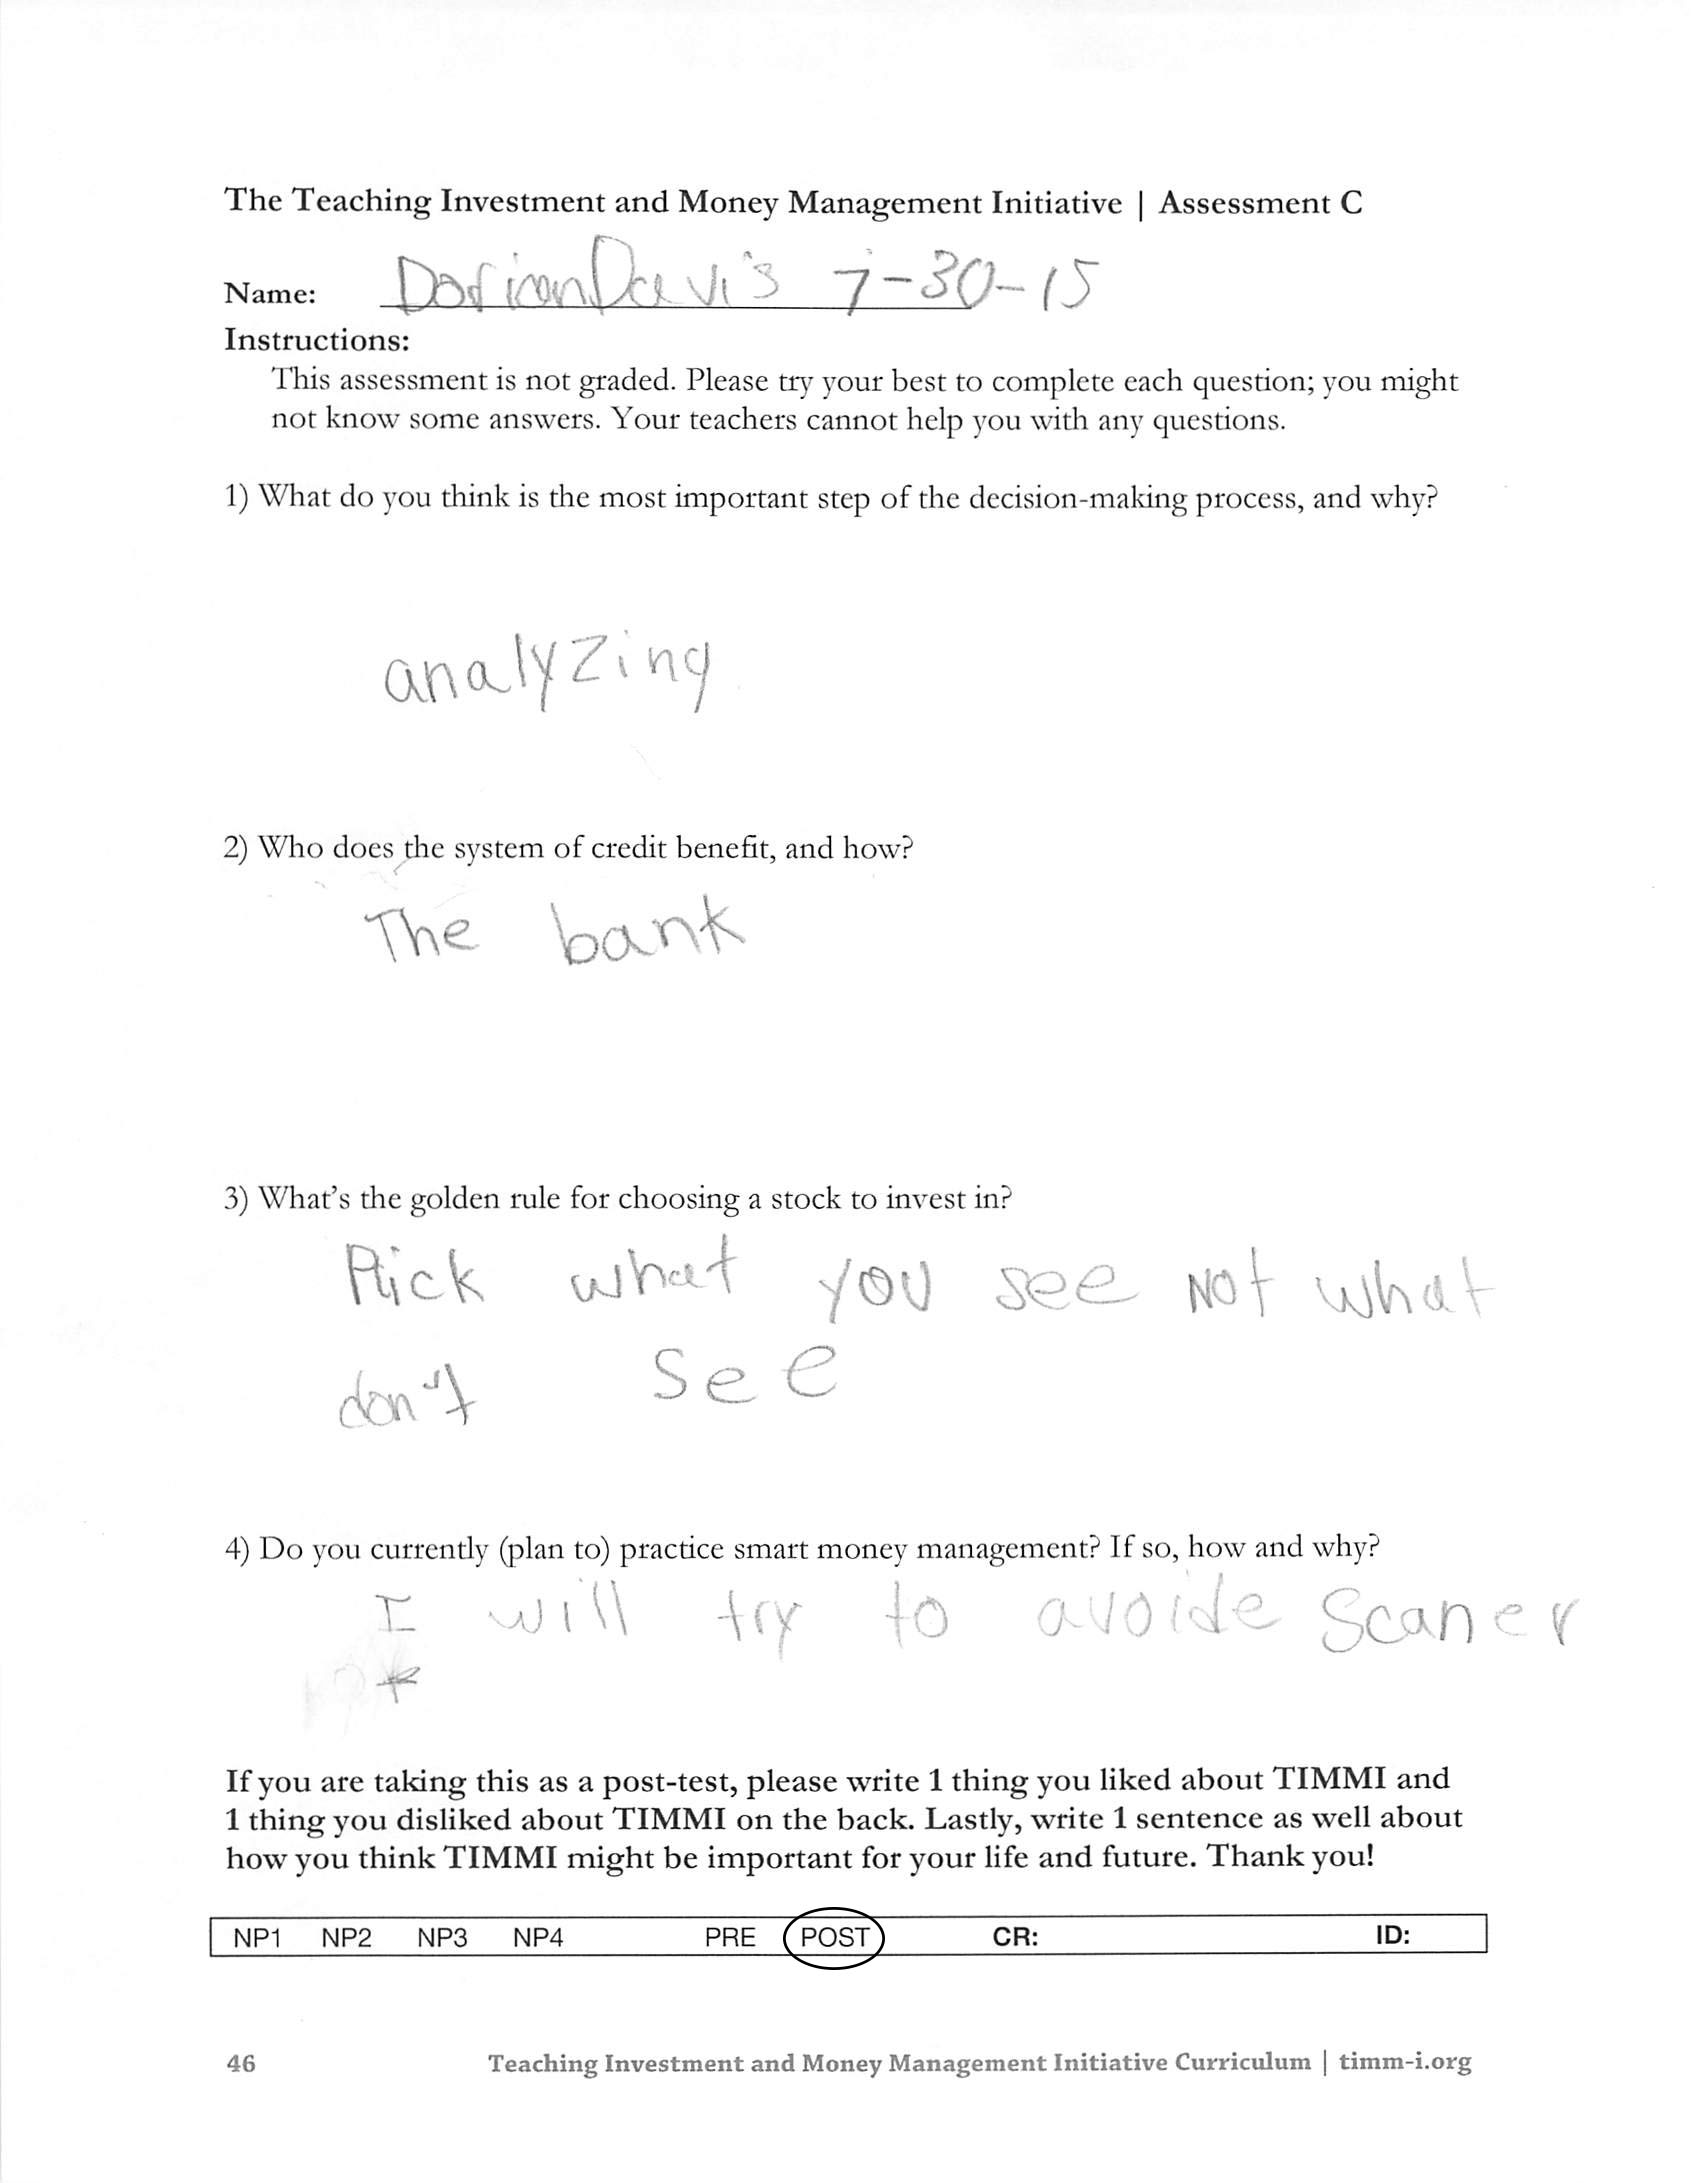 The Teaching Investment and Money Management Initiative | Assessment C
Name: Dorian Davis 7-30-15
Instructions:
This assessment is not graded. Please try your best to complete each question; you might
not know some answers. Your teachers cannot help you with any questions.
1) What do you think is the most important step of the decision-making process, and why?
analyzing
2) Who does the system of credit benefit, and how?
The bank
3) What's the golden rule for choosing a stock to invest in?
Pick what you see not what
don't see
4) Do you currently (plan to) practice smart money management? If so, how and why?
I will try to avoide scaner
If you are taking this as a post-test, please write 1 thing you liked about TIMMI and
1 thing you disliked about TIMMI on the back. Lastly, write 1 sentence as well about
how you think TIMMI might be important for your life and future. Thank you!
NP1 NP2 NP3 NP4 PRE POST CR: ID:
46 Teaching Investment and Money Management Initiative Curriculum | timm-i.org